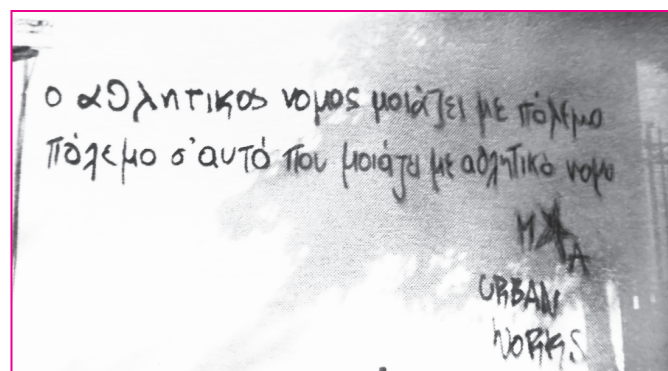 ο αθλητικος νομος μοιάζει με πόλεμο
πόλεμο σ'αυτό που μοιάζει με αθλητικό νομο
Μ★Α
URBAN
WORKS